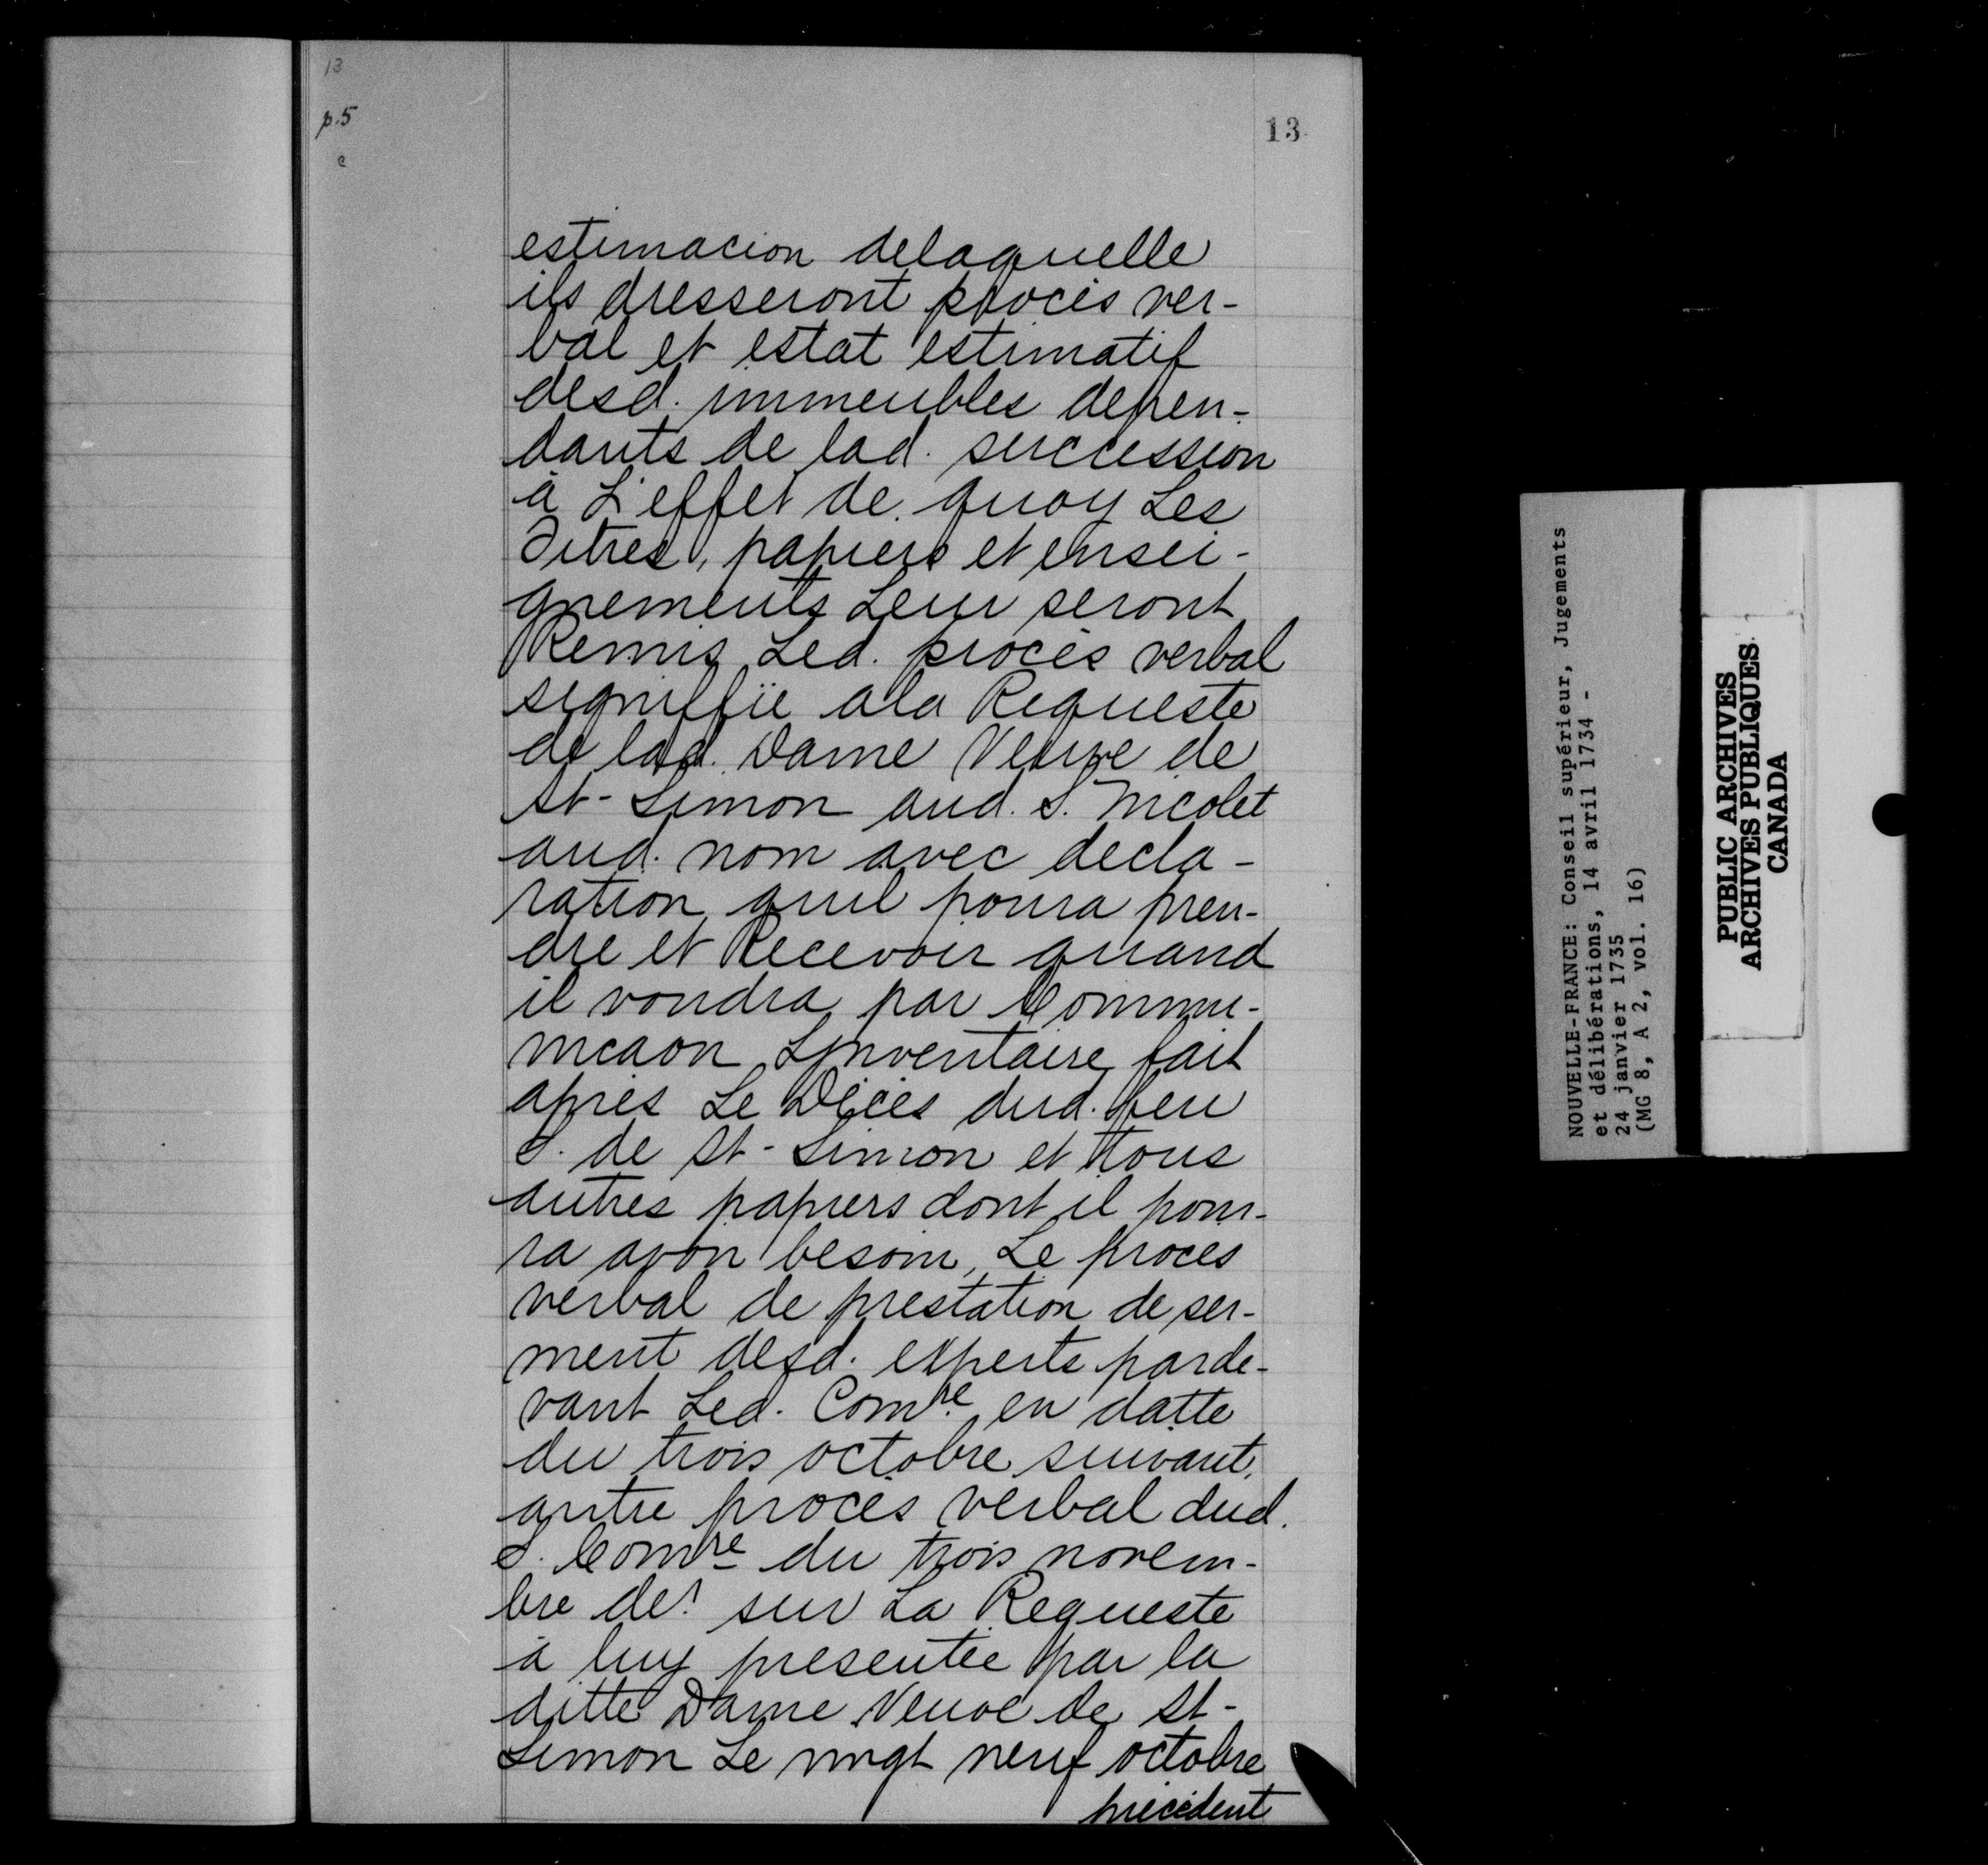 13
p.5
e
13
estimacion delaquelle
ils dresseront procès ver-
bal et estat estimatif
desd. immeubles depen-
dants de lad. succession
à L'effet de quoy Les
Titres, papiers et ensei-
gnements Leur seront
Remis Led. procès verbal
signiffié ala Requeste
de lad. Dame Veuve de
St-Simon aud. S. Nicolet
aud. nom avec decla-
ration quil poura pren-
dre et Recevoir quand
il voudra par Commu-
nicaon Linventaire fait
après Le Décès dud. feu
S. de St-Simon et tous
autres papiers dont il pou-
ra avoir besoin, Le procès
verbal de prestation de ser-
ment desd. experts parde-
vant Led. Comre en datte
du trois octobre suivant,
autre procès verbal dud.
S. Comre du trois novem-
bre der sur La Requeste
à luy presentée par la
ditte Dame Veuve de St-
Simon Le vingt neuf octobre
précédent
NOUVELLE-FRANCE: Conseil supérieur, Jugements
et délibérations, 14 avril 1734 -
24 janvier 1735
(MG 8, A 2, vol. 16)
PUBLIC ARCHIVES
ARCHIVES PUBLIQUES
CANADA